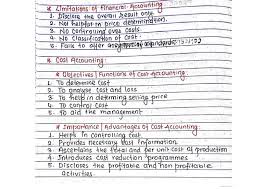 * Limitations of Financial Accounting
1. Disclose the overall result only.
2. Not helpful in price determination.
3. No controlling over costs.
4. No classification of cost.
5. Fails to offer
* Cost Accounting:
* Objectives / Functions of Cost Accounting:
1. To determine cost
2. To analyse cost and loss
3. To help in determining selling price
4. To control cost
5. To aid the management
* Importance / Advantages of Cost Accounting:
1. Helps in controlling cost
2. Provides necessary cost information.
3. Ascertains the total and per unit cost of production
4. Introduces cost reduction programmes
5. Discloses the profitable and non profitable
activities